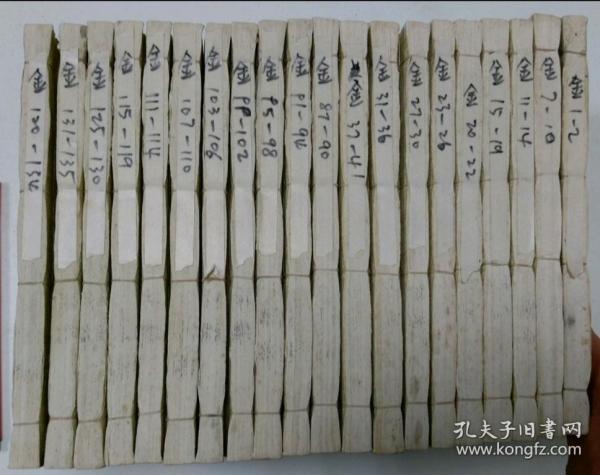 金 120-124
金 131-135
金 125-130
金 115-119
金 111-114
金 107-110
金 103-106
金 99-102
金 95-98
金 91-94
金 87-90
金 37-41
金 31-36
金 27-30
金 23-26
金 20-22
金 15-19
金 11-14
金 7-10
金 1-2
孔夫子旧書网
www.kongfz.com